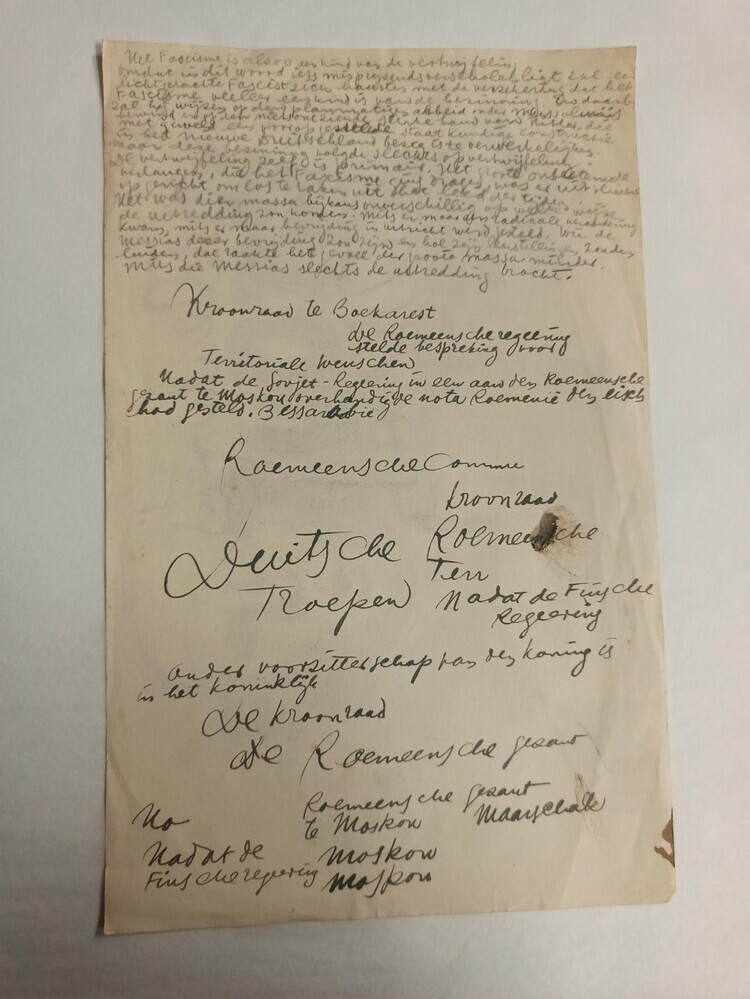 Het Fascisme is alzoo een kind van de vertwijfeling,
omdat in dit woord iets misprijzends verscholen ligt zal een
lichtgeraakte Fascist zich haasten met de verzekering dat het
Fascisme veeleer een kind is van de bezinning. Ons daarbij
zal hij wijzen op den planmatigen arbeid onder Mussolini's
bewind en op den niets ontziende sterke hand van Hitler, die
met geweld een voorop gestelde staatkundige constructie
in het nieuwe Duitschland bezig is te verwerkelijken.
maar deze bezinning volgde slechts op vertwijfeling
de vertwijfeling zelf is primair. Het groote ontketende
verlangen, die het Faxisme ging dragen, was er uitsluitend
op gericht om los te raken uit het leed der tijden
Het was dier massa bijkans onverschillig op welke wijze
de uitredding zou komen. Mits er maar een radicale verandering
kwam, mits er maar bevrijding in uitzicht werd gesteld. Wie de
Messias dezer bevrijding zou zijn en hoe zijn leerstellingen zouden
luiden, dat raakte het gevoel der groote massa minder.
Mits die Messias slechts de uitredding bracht.
Kroonraad te Boekarest
De Roemeensche regeering
stelde bespreking voor
Territoriale wenschen
Nadat de Sovjet-Regeering in een aan den Roemeensche
gezant te Moskou overhandigde nota Roemenië den eisch
had gesteld. Bessarabië
Roemeensche Commu
Kroonraad
Duitsche Roemeensche
Troepen Terr
Nadat de Finsche
Regeering
Onder voorzitterschap van den koning is
in het koninklijk
De kroonraad
De Roemeensche gezant
Roemeensche gezant
Na te Moskou Maarschalk
Nadat de Moskou
Finsche regeering Moskou